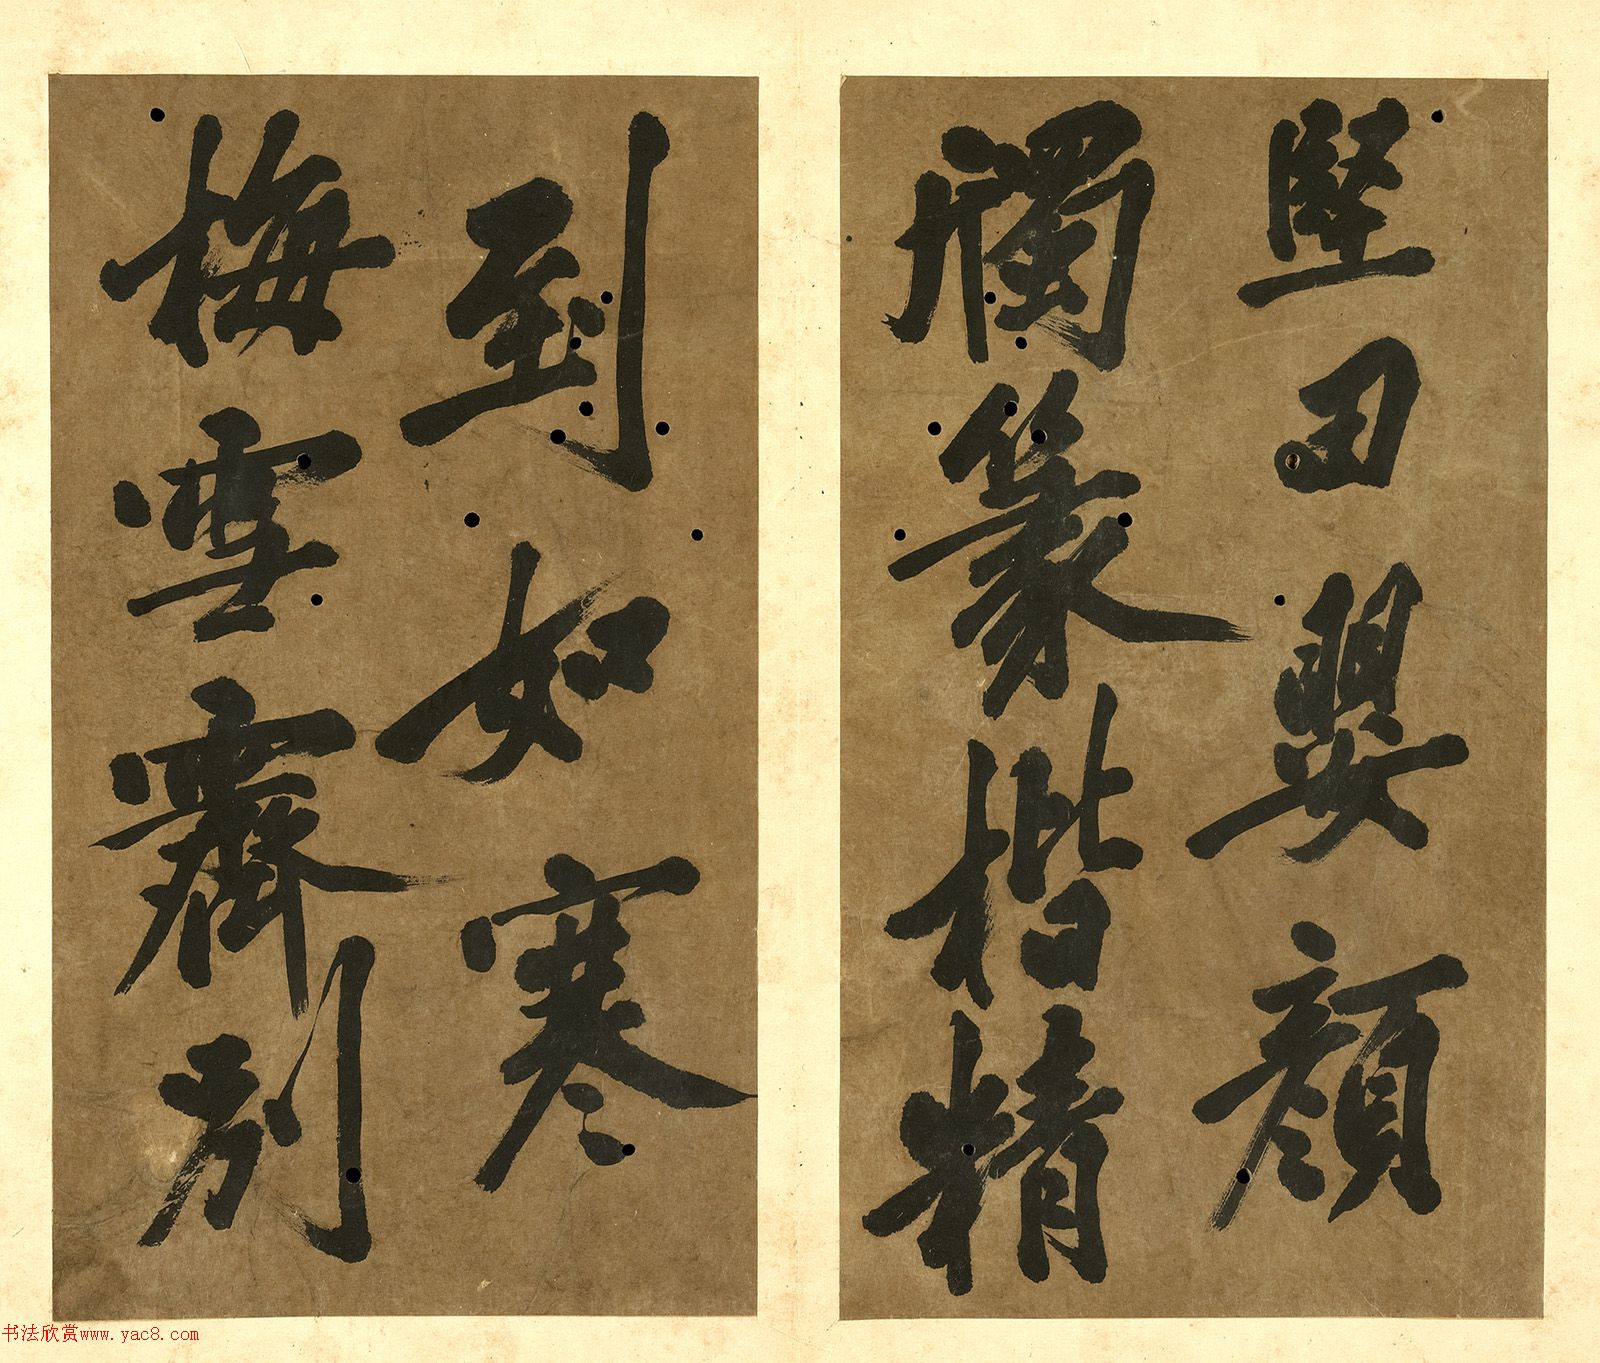 堅丑嬰顏
獨篆楷精
到如寒
梅雪霽別
书法欣赏www.yac8.com